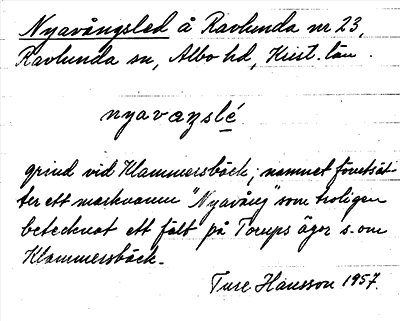 Nyavångsled å Ravlunda nr 23,
Ravlunda sn, Albo hd, Krist. län.
nyavaŋslé
grind vid Klammersbäck; namnet förutsät
ter ett marknamn "Nyavång" som troligen
betecknat ett fält på Torups ägor s. om
Klammersbäck.
Ture Hansson 1957.